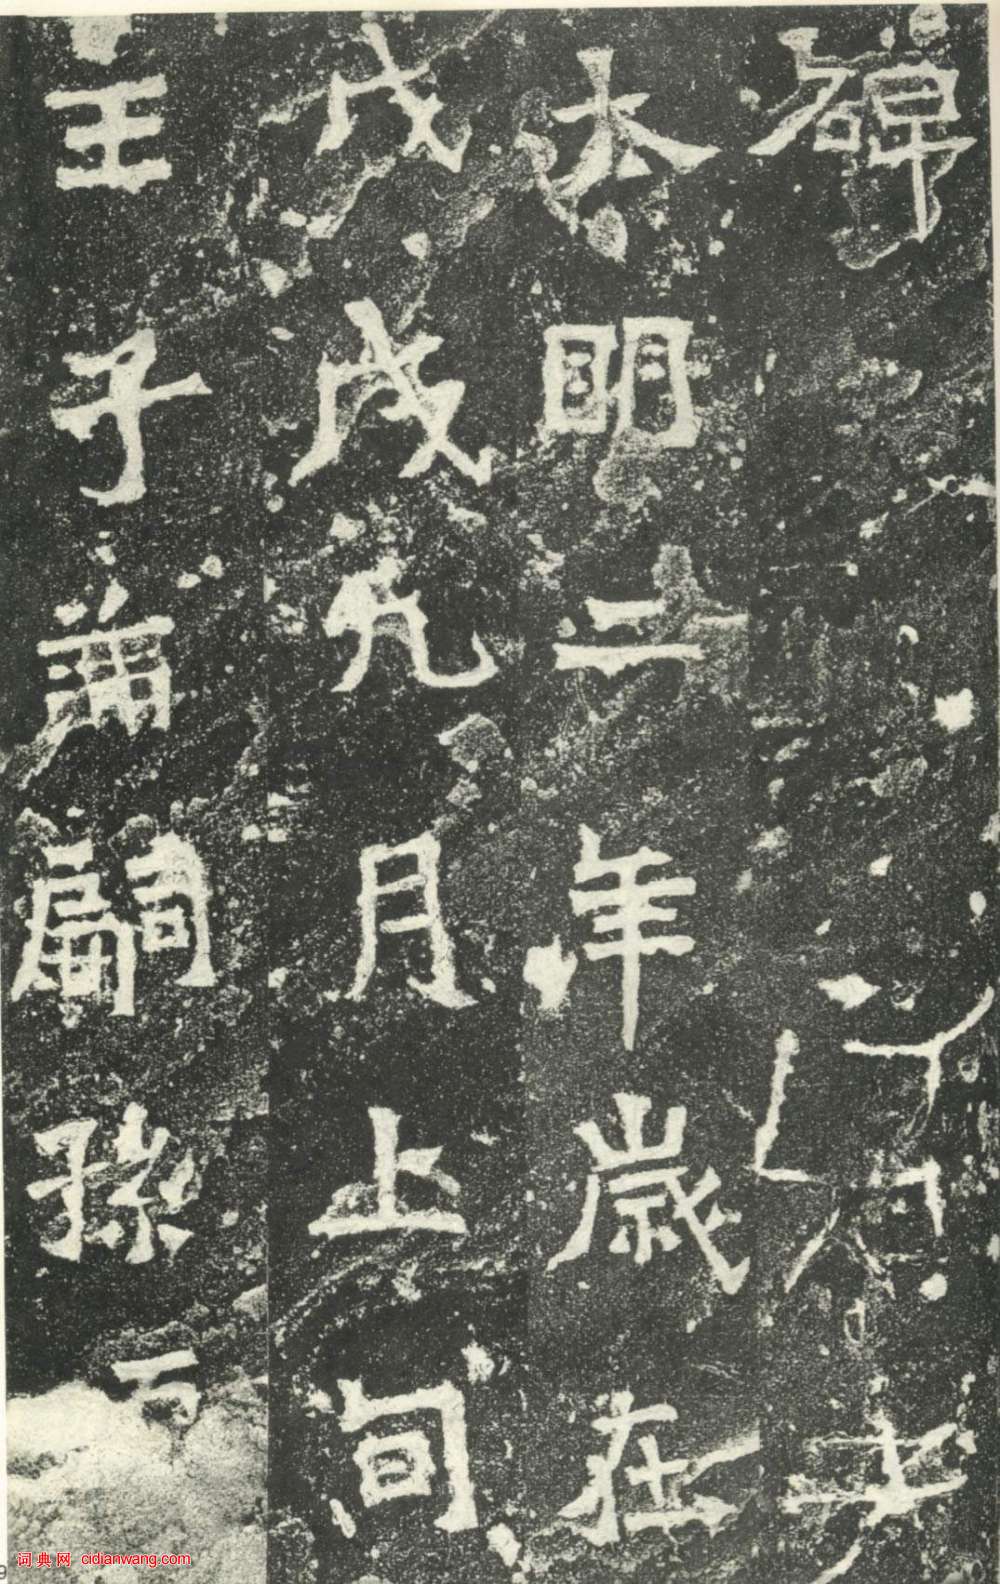 碑
太明二年歲在
戊戌九月上旬
壬子蒱嗣孫
词典网 cidianwang.com